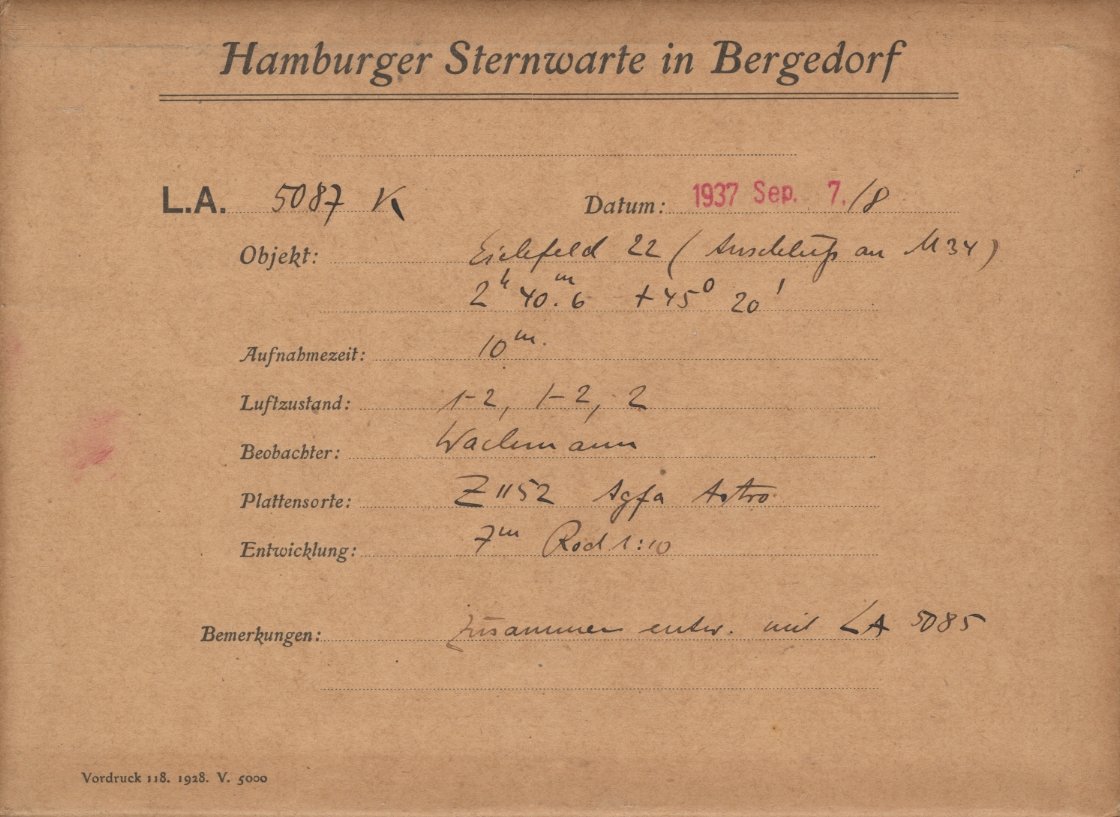 Hamburger Sternwarte in Bergedorf
L.A. 5087 K Datum: 1937 Sep. 7./8
Objekt: Eichfeld 22 (Anschluß an M34)
2ʰ 40.ᵐ6 +45⁰ 20'
Aufnahmezeit: 10ᵐ.
Luftzustand: 1-2, 1-2, 2
Beobachter: Wachmann
Plattensorte: Z1152 Agfa Astro
Entwicklung: 7ᵐ Rod 1:10
Bemerkungen: zusammen entw. mit LA 5085
Vordruck 118. 1928. V. 5000